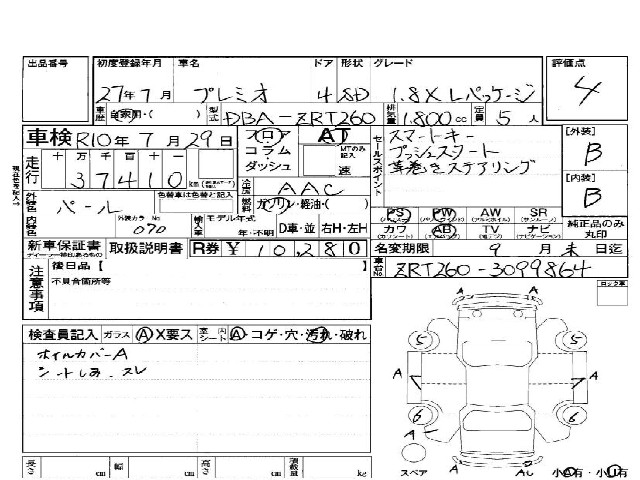 出品番号 初度登録年月 車名 ドア 形状 グレード 評価点
27年7月 プレミオ 4 SD 1.8X Lパッケージ 4
車歴 自家用・( ) 型式 DBA-ZRT260 排気量 1,800cc 定員 5人
車検 R10年7月29日 フロア AT セールスポイント スマートキー [外装]
コラム MTのみ記入 プッシュスタート B
ダッシュ 速 革巻きステアリング
走行 十万千百十 37410 km 冷房 AAC [内装]
外装色 パール 色替車は色替と記入 燃料 ガソリン・軽油・( ) B
内装色 外装カラーNo 070 輸入車 モデル年式 年・不明 D車・並 右H・左H
PS PW AW SR 純正品のみ
カワ AB TV ナビ 丸印
新車保証書 取扱説明書 R券 ¥10,280 名変期限 9月末日迄
注意事項 後日品【 車台No ZRT260-3099864
不具合箇所等 ロック車
検査員記入 ガラス A X要ス 室内シート A・コゲ・穴・汚れ・破れ
ホイルカバーA
シートしみ.スレ
5 5
A A A
6 6
A
スペア A AU 小A有・小U有
長さ cm 幅 cm 高さ cm 積載量 kg